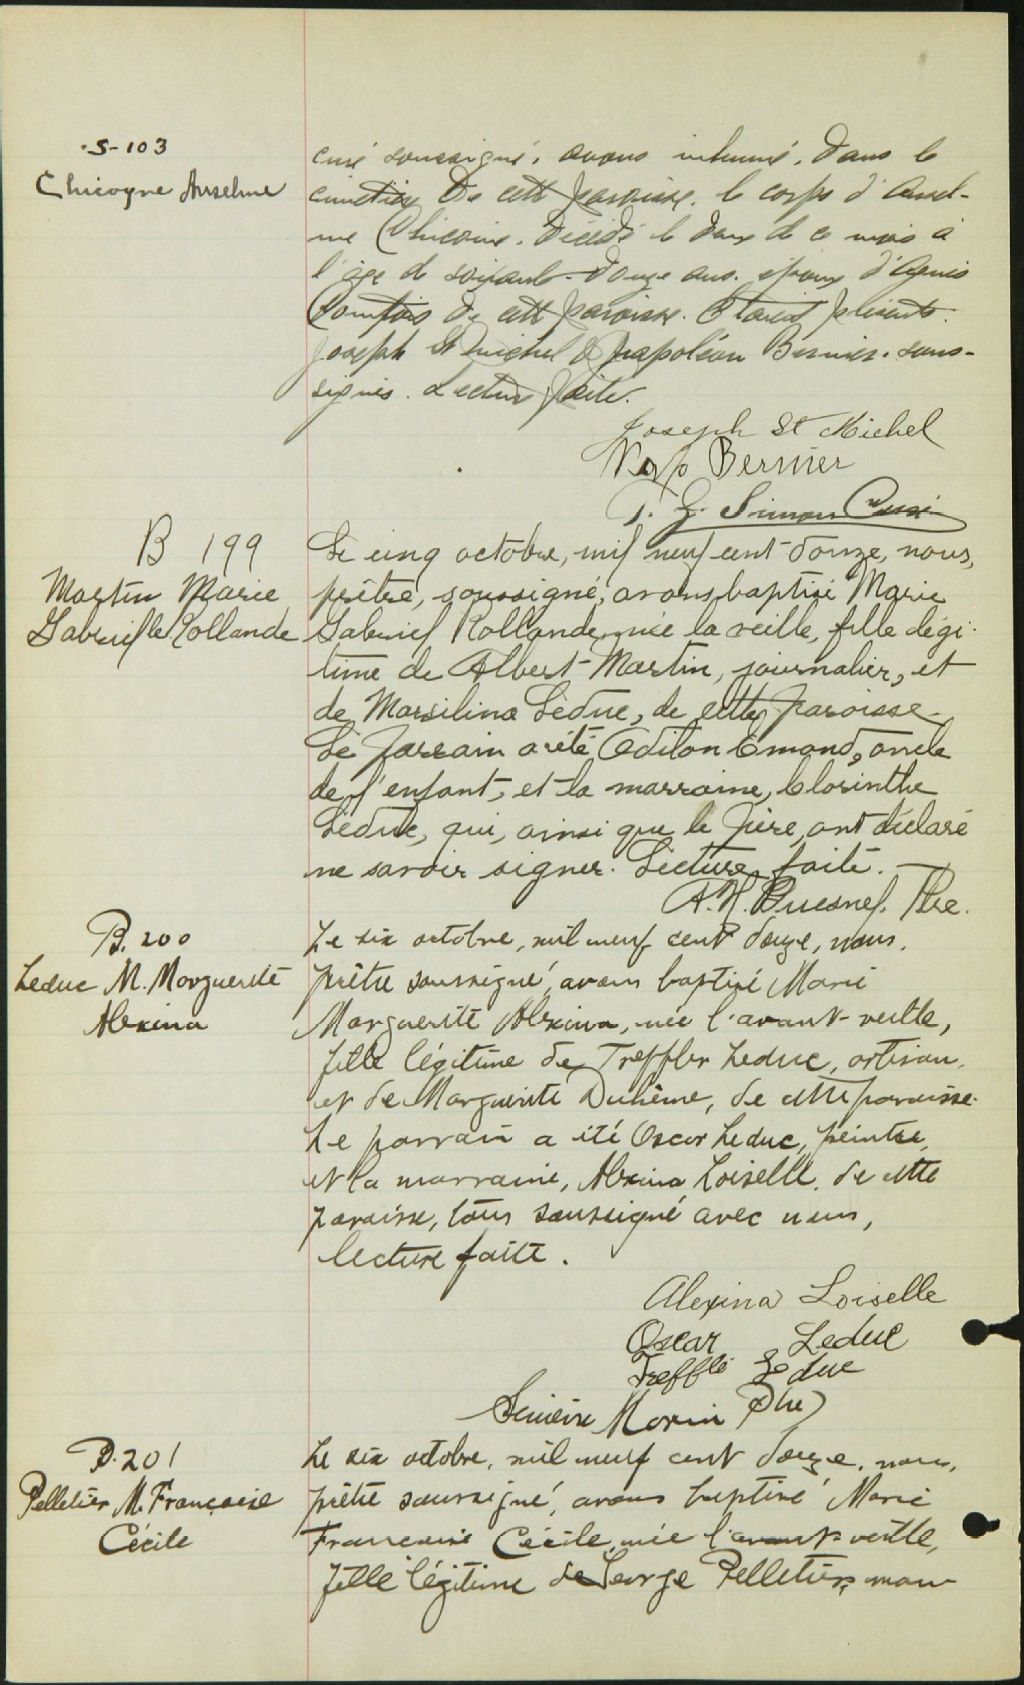 S-103
Chicoyne Anselme
curé soussigné, avons inhumé, dans le
cimetière de cette paroisse, le corps d'Ansel-
me Chicoine, décédé le deux de ce mois à
l'âge de soixante-douze ans, époux d'Agnès
Comtois de cette paroisse. Etaient présents
Joseph St Michel & Napoléon Bernier, sous-
signés. Lecture faite.
Joseph St Michel
Nap Bernier
Simon Curé
B 199
Martin Marie
Gabrielle Rollande
Le cinq octobre, mil neuf cent douze, nous,
prêtre, soussigné, avons baptisé Marie
Gabriel Rollande, née la veille, fille légi-
time de Albert Martin, journalier, et
de Marsilina Leduc, de cette paroisse.
Le parrain a été Odilon Emond, oncle
de l'enfant, et la marraine, Clorinthe
Leduc, qui, ainsi que le père, ont déclaré
ne savoir signer. Lecture faite.
A. H. Buesnel, Ptre.
B. 200
Leduc M. Marguerite
Alexina
Le six octobre, mil neuf cent douze, nous,
prêtre soussigné, avons baptisé Marie
Marguerite Alexina, née l'avant-veille,
fille légitime de Treffler Leduc, artisan,
et de Marguerite Duhême, de cette paroisse.
Le parrain a été Oscar Leduc, peintre,
et la marraine, Alexina Loiselle, de cette
paroisse, tous soussigné avec nous,
lecture faite.
Alexina Loiselle
Oscar Leduc
Trefflé Leduc
Morin Ptre
B. 201
Pelletier M. Françoise
Cécile
Le six octobre, mil neuf cent douze, nous,
prêtre soussigné, avons baptisé Marie
Françoise Cécile, née l'avant-veille,
fille légitime de George Pelletier, mou